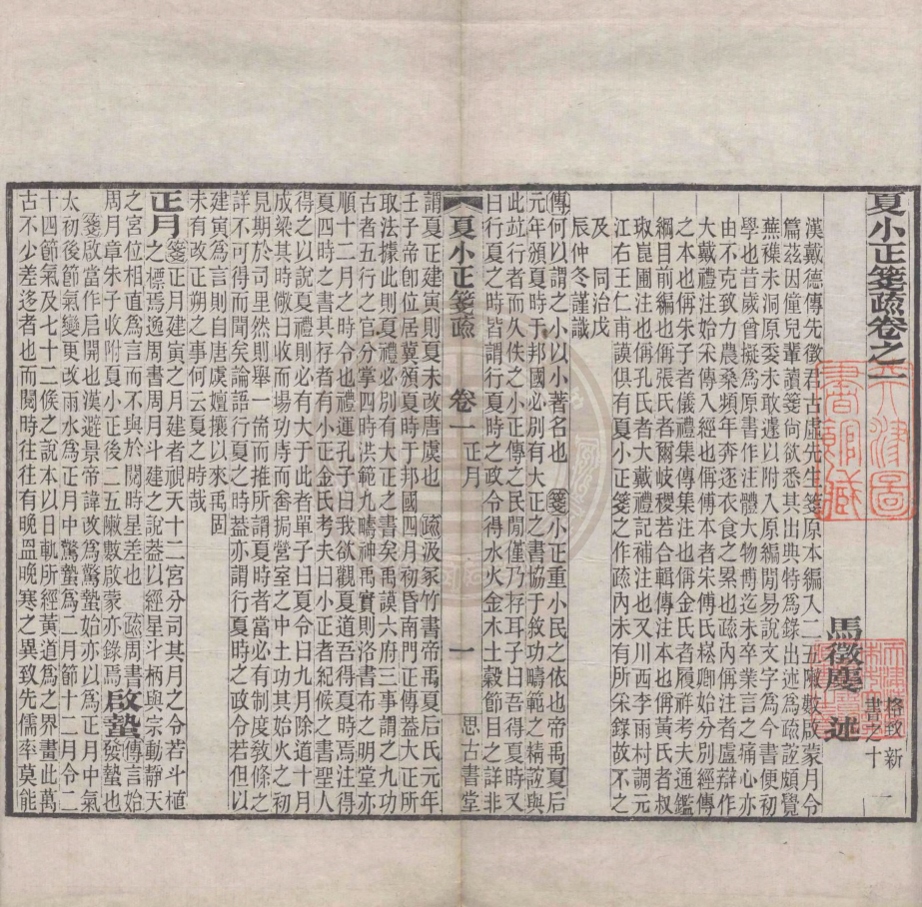 夏小正箋疏卷之一
馬徵慶 述
格致新
書之十
一
漢戴德傳先徵君古虛先生箋原本編入二五陬數啟蒙月令
篇茲因僮兒輩讀箋尚欲悉其出典特為錄出述為疏諠頗覺
蕪襍未洞原委未敢遽以附入原編閒易說文字為今書便初
學也昔歲曾擬為原書作注體大物博迄未卒業言之痛心亦
由不克致力農桑頻年奔逐衣食之累也疏內偁注者盧辯作
大戴禮注始宋傳入經也偁傳本者朱傅氏崧卿始分別經傳
之本也偁朱子者儀禮集傳集注也偁金氏者履祥考夫通鑑
綱目前編也偁張氏者爾岐稷若合輯傳注本也偁黃氏者叔
琡崑圃注也偁孔氏者大戴禮記補注也又川西李雨村調元
江右王仁甫謨俱有夏小正箋之作疏內未有所宋錄故不之
及 同治戊
辰仲冬謹識
傳何以謂之小以小著名也 箋小正重小民之依也帝禹夏后
元年頒夏時于邦國必別有大正之書協于敘功疇範之精諠與
此竝行者而久佚之小正傳之民閒僅乃存耳子曰吾得夏時又
曰行夏之時皆謂行夏時之政令得水火金木土穀節目之詳非
夏小正箋疏 卷一 正月 一 思古書堂
謂夏正建寅則夏未改唐虞也 疏汲冢竹書帝禹夏后氏元年
壬子帝卽位居冀頒夏時于邦國四月初昏南門正傳蓋大正所
取法據此則夏禮必別有大正之書矣禹謨六府三事謂之九功
古者五行之官分掌四時洪範九疇神禹實則洛書布之明堂亦
順十二月之時令也禮運孔子曰我欲觀夏道吾得夏時焉注得
夏四時之書其存者有小正金氏考夫曰小正者紀候之書聖人
得之以說夏禮則必有大于此者單子曰夏令曰九月除道十月
成梁其時儆曰收而場功偫而畚挶營室之中土功其始火之初
見期於司里然則舉一備而推所謂夏時者當必有制度敎條之
詳不可得而聞矣論語行夏之時蓋亦謂行夏時之政令若但以
建寅為言則自唐虞嬗攘以來禹固
未有改正朔之事何云夏之時哉
正月 箋正月建寅之月建者視天十二宮分司其月之令若斗植
之標焉逸周書周月斗建之說葢以經星斗柄與宗動靜天
之宮位相直為言而不與於閱時星差也 疏周書
周月章朱子收附夏小正後二五陬數啟蒙亦錄焉 啟蟄 傳言始
發蟄也
箋啟當作启開也漢避景帝諱改為驚蟄始亦以為正月中氣
太初後節氣變更改雨水為正月中驚蟄為二月節十二月令二
十四節氣及七十二候之說本以日軌所經黃道為之界畫此萬
古不少差迻者也而閱時往往有晚溫晚寒之異致先儒率莫能